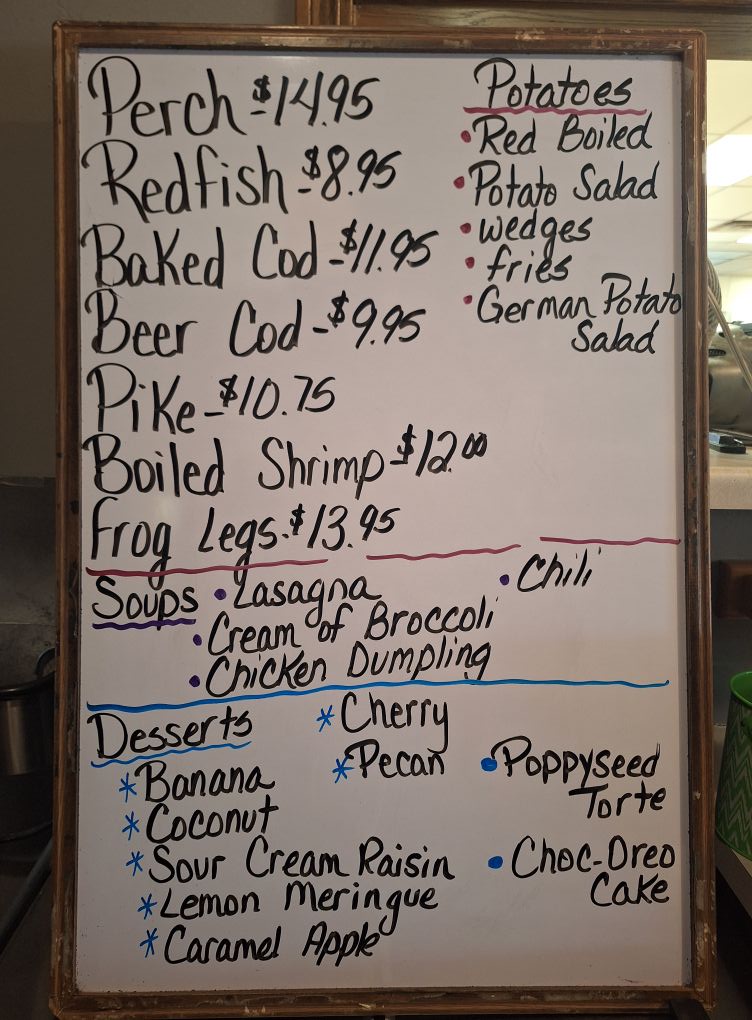 Perch - $14.95
Redfish - $8.95
Baked Cod - $11.95
Beer Cod - $9.95
Pike - $10.75
Boiled Shrimp - $12.00
Frog Legs - $13.95
Potatoes
• Red Boiled
• Potato Salad
• wedges
• fries
• German Potato
Salad
Soups
• Lasagna
• Cream of Broccoli
• Chicken Dumpling
• Chili
Desserts
* Banana
* Coconut
* Sour Cream Raisin
* Lemon Meringue
* Caramel Apple
* Cherry
* Pecan
• Poppyseed
Torte
• Choc-Oreo
Cake